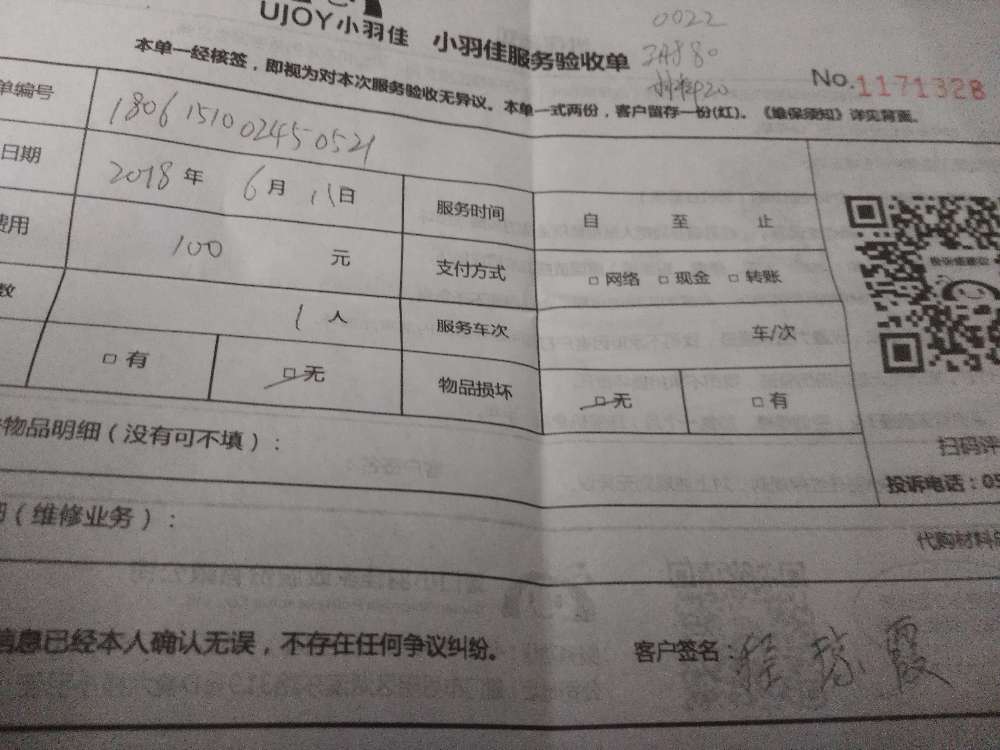 UJOY小羽佳 小羽佳服务验收单
0022
工时80
材料20
No.1171328
本单一经核签，即视为对本次服务验收无异议。本单一式两份，客户留存一份(红)。《维保须知》详见背面。
单编号 1806151002450521
日期 2018年 6月 18日 服务时间 自 至 止
费用 100 元 支付方式 □网络 □现金 □转账
数 1 人 服务车次 车/次
□有 □无 物品损坏 □无 □有
投诉或建议
物品明细（没有可不填）：
扫码评
投诉电话：05
（维修业务）：
代购材料
信息已经本人确认无误，不存在任何争议纠纷。 客户签名：程琼霞